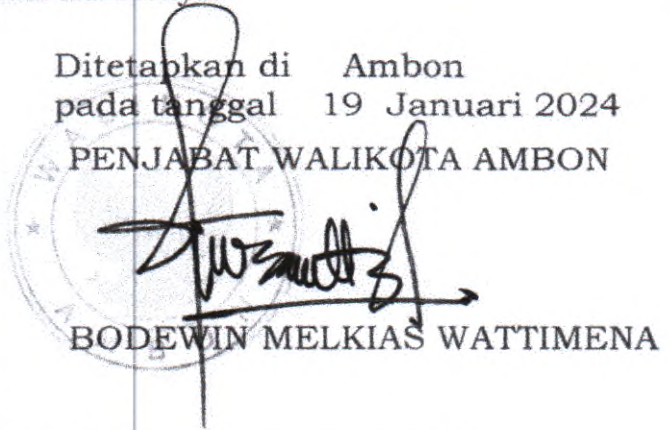 Ditetapkan di Ambon
pada tanggal 19 Januari 2024
PENJABAT WALIKOTA AMBON
BODEWIN MELKIAS WATTIMENA